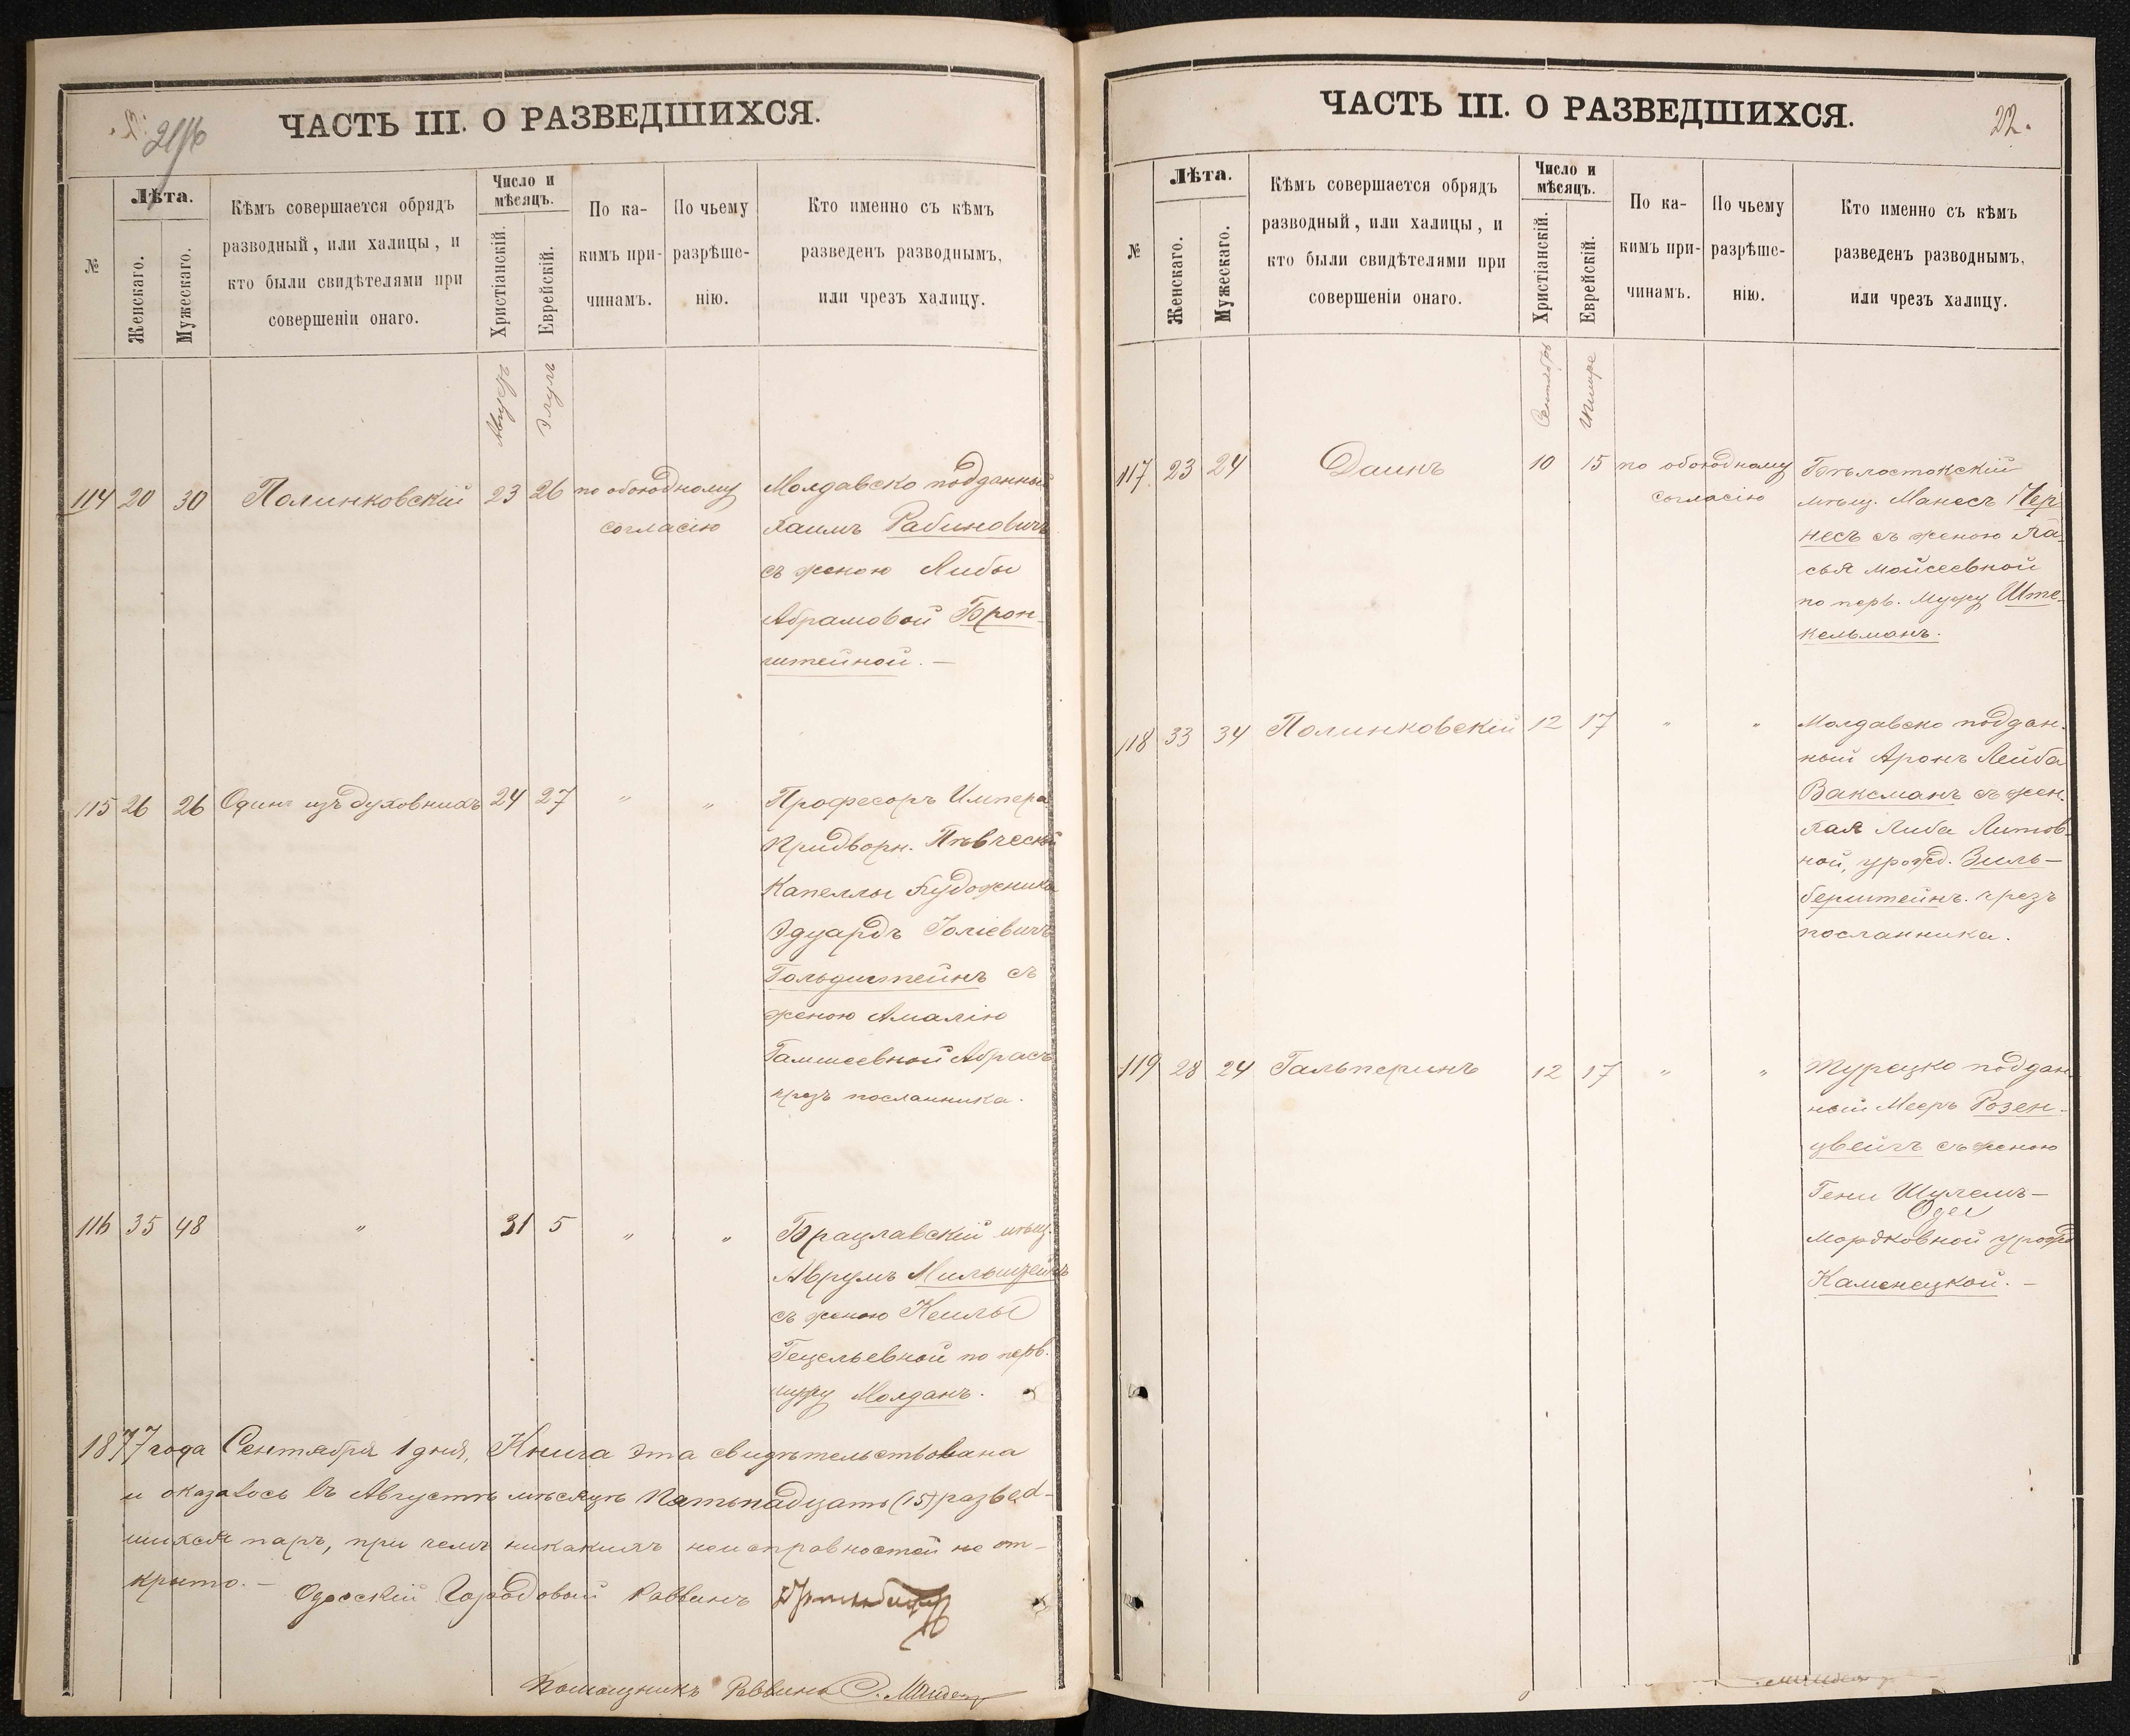 ЧАСТЬ III. О РАЗВЕДШИХСЯ.
№
Лѣта.
Женскаго.
Мужескаго.
Кѣмъ совершается обрядъ
разводный, или халицы, и
кто были свидѣтелями при
совершеніи онаго.
Число и
мѣсяцъ.
Христіанскій.
Еврейскій.
По ка-
кимъ при-
чинамъ.
По чьему
разрѣше-
нію.
Кто именно съ кѣмъ
разведенъ разводнымъ,
или чрезъ халицу.
Августъ
Элулъ
114 20 30 Полинковскій 23 26 по обоюдному Молдавско подданный
согласію Хаимъ Рабиновичъ
съ женою Либы
Абрамовой Брон-
штейной. —
115 26 26 Одинъ изъ духовныхъ 24 27 " " Професоръ Импера
Придворн. Пѣвческой
Капеллы Художника
Эдуардъ Юліевичъ
Гольдштейнъ съ
женою Амалію
Абрасъ
чрезъ посланника.
116 35 48 " 31 5 " " Брацлавскій мѣщ.
Аврумъ Мильштейнъ
съ женою Кейлы
Гецельевной по перв.
мужу Молданъ.
1877 года Сентября 1 дня, Книга эта свидѣтельствована
и оказалось въ Августѣ мѣсяцѣ Пятьнадцать (15) развед-
шихся паръ, при чемъ никакихъ неисправностей не от-
крыто. — Одесскій Городовой Раввинъ
Помощникъ Раввина
ЧАСТЬ III. О РАЗВЕДШИХСЯ.
22.
№
Лѣта.
Женскаго.
Мужескаго.
Кѣмъ совершается обрядъ
разводный, или халицы, и
кто были свидѣтелями при
совершеніи онаго.
Число и
мѣсяцъ.
Христіанскій.
Еврейскій.
По ка-
кимъ при-
чинамъ.
По чьему
разрѣше-
нію.
Кто именно съ кѣмъ
разведенъ разводнымъ,
или чрезъ халицу.
Сентябрь
Тишре
117 23 24 Даинъ 10 15 по обоюдному Бѣлостокскій
согласію мѣщ. Манесъ Чер-
несъ съ женою Ха-
сья Мойсеевной
по перв. мужу Ште-
кельманъ.
118 33 34 Полинковскій 12 17 " " Молдавско поддан-
ный Аронъ Лейба
Ваксманъ съ жен.
Хая Либа Литов-
ной, урожд. Зиль-
берштейнъ. чрезъ
посланника.
119 28 24 Гальперинъ 12 17 " " Турецко поддан-
ный Мееръ Розен-
цвейгъ съ женою
Гени Шулемъ-
Одел
Мордковной урожд
Каменецкой. —